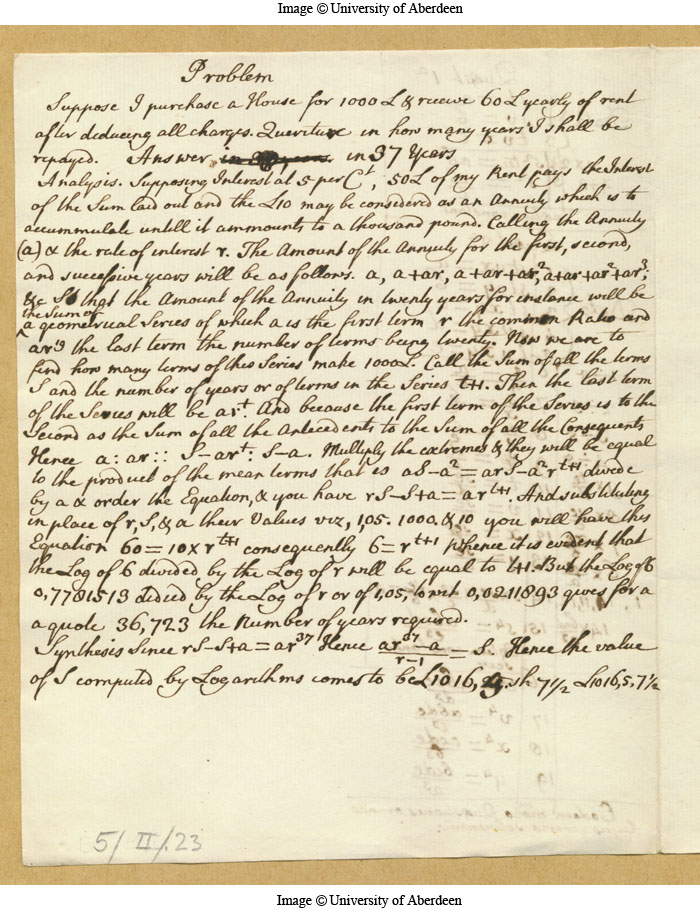 Image © University of Aberdeen
Problem
Suppose I purchase a House for 1000 L & receive 60 L yearly of rent
after deducing all charges. Queritur in how many years I shall be
repayed. Answer in 37 Years
Analysis. Supposing Interest at 5 per Ct, 50L of my Rent pays the Interest
of the Sum laid out and the L10 may be considered as an Annuity which is to
accummulate untill it ammounts to a thousand pound. Calling the Annuity
(a) & the rate of interest r. The Amount of the Annuity for the first, second,
and successive years will be as follows. a, a+ar, a+ar+ar², a+ar+ar²+ar³.
&c So that the Amount of the Annuity in twenty years for instance will be
the Sum of
a geometrical Series of which a is the first term r the common Ratio and
ar¹⁹ the last term the number of terms being twenty. Now we are to
find how many terms of this Series make 1000L. Call the Sum of all the terms
S and the number of years or of terms in the Series t+1. Then the last term
of the Series will be arᵗ. And because the first term of the Series is to the
Second as the Sum of all the Antecedents to the Sum of all the Consequents
Hence a : ar :: S-arᵗ : S-a. Multiply the extremes & they will be equal
to the product of the mean terms that is aS-a² = arS-a²rᵗ⁺¹ divide
by a & order the Equation, & you have rS-S+a = arᵗ⁺¹. And substituting
in place of r, S, & a their Values viz, 1,05. 1000. & 10 you will have this
Equation 60 = 10 × rᵗ⁺¹ consequently 6 = rᵗ⁺¹ Whence it is evident that
the Log of 6 divided by the Log of r will be equal to t+1. But the Log of 6
0,7781513 dided by the Log of r or of 1,05, to wit 0,0211893 gives for a
a quote 36,723 the Number of years required.
Synthesis Since rS-S+a = ar³⁷ Hence ar³⁷-a/r-1 = S. Hence the value
of S computed by Logarithms comes to be L1016, sh 7½ L1016,5.7½
5/II/.23
Image © University of Aberdeen